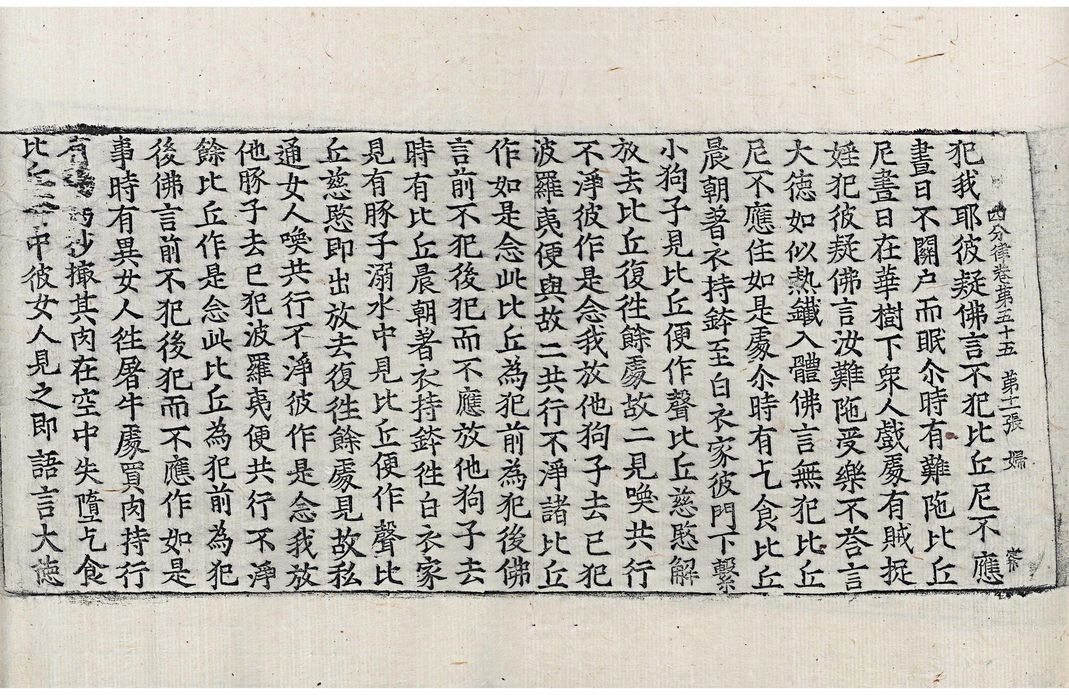 四分律卷第五十五 第十一張 婦
犯我耶彼疑佛言不犯比丘尼不應
晝日不關户而眠尒時有難陁比丘
尼晝日在華樹下衆人戲處有賊捉
婬犯彼疑佛言汝難陁受樂不荅言
大德如似熱鐵入體佛言無犯比丘
尼不應住如是處尒時有乞食比丘
晨朝著衣持鉢至白衣家彼門下繫
小狗子見比丘便作聲比丘慈愍解
放去比丘復徃餘處故二見喚共行
不淨彼作是念我放他狗子去已犯
波羅夷便與故二共行不淨諸比丘
作如是念此比丘為犯前為犯後佛
言前不犯後犯而不應放他狗子去
時有比丘晨朝著衣持鉢徃白衣家
見有豚子溺水中見比丘便作聲比
丘慈愍即出放去復徃餘處見故私
通女人喚共行不淨彼作是念我放
他豚子去已犯波羅夷便共行不淨
餘比丘作是念此比丘為犯前為犯
後佛言前不犯後犯而不應作如是
事時有異女人徃屠牛處買肉持行
有抄撮其肉在空中失墮乞食
比丘中彼女人見之即語言大德